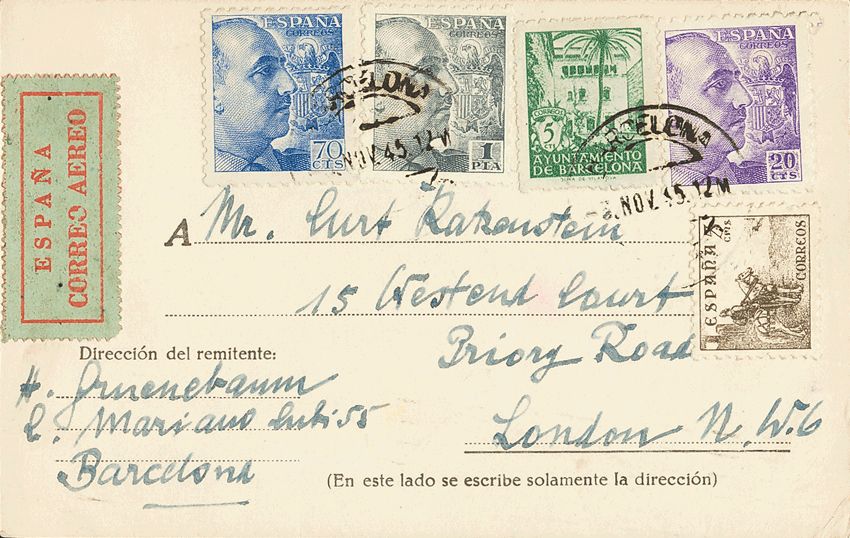 ESPAÑA
CORREOS
70
CTS
ESPAÑA
CORREOS
1
PTA
5
CTS
AYUNTAMIENTO
DE BARCELONA
ESPAÑA
CORREOS
20
CTS
ESPAÑA
CORREO AEREO
BARCELONA
NOV. 45. 12M
BARCELONA
NOV. 45. 12M
ESPAÑA
CORREOS
CTS
A Mr. Curt Katzenstein
15 Westend Court
Priory Road
London N.W.6
Dirección del remitente:
H. Gruenebaum
Mariano Cubi 55
Barcelona
(En este lado se escribe solamente la dirección)